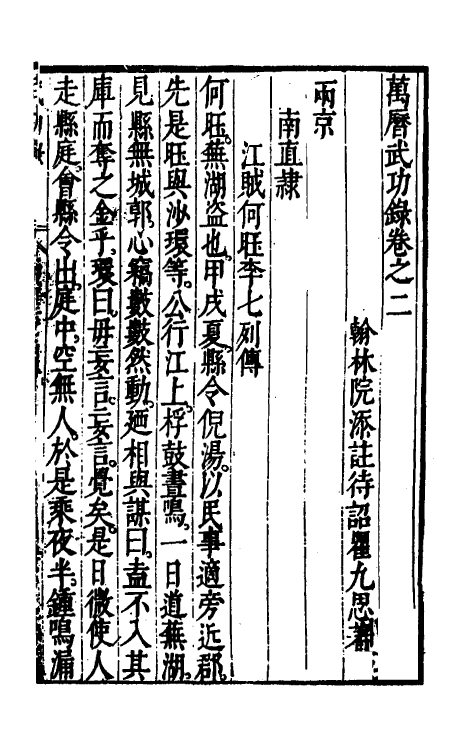 萬曆武功錄卷之二
翰林院添註待詔瞿九思著
兩京
南直隸
江賊何旺李七列傳
何旺。蕪湖盜也。甲戌夏。縣令倪湯。以民事適旁近郡。
先是旺與沙環等。公行江上。桴鼓晝鳴。一日道蕪湖。
見縣無城郭。心竊數數然動。廼相與謀曰。盍不入其
庫而奪之金乎。環曰。毋妄言。妄言。覺矣。是日微使人
走縣庭。會縣令出。庭中。空無人。於是乘夜半。鍾鳴漏